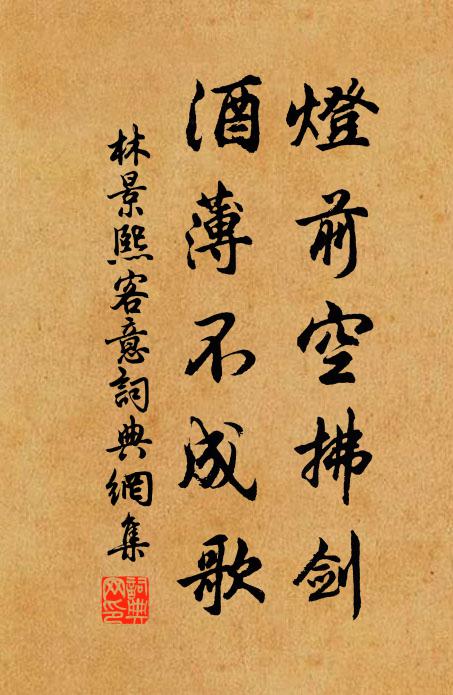 燈前空拂劍
酒薄不成歌
林景熙客意詞典網集
詞典网印